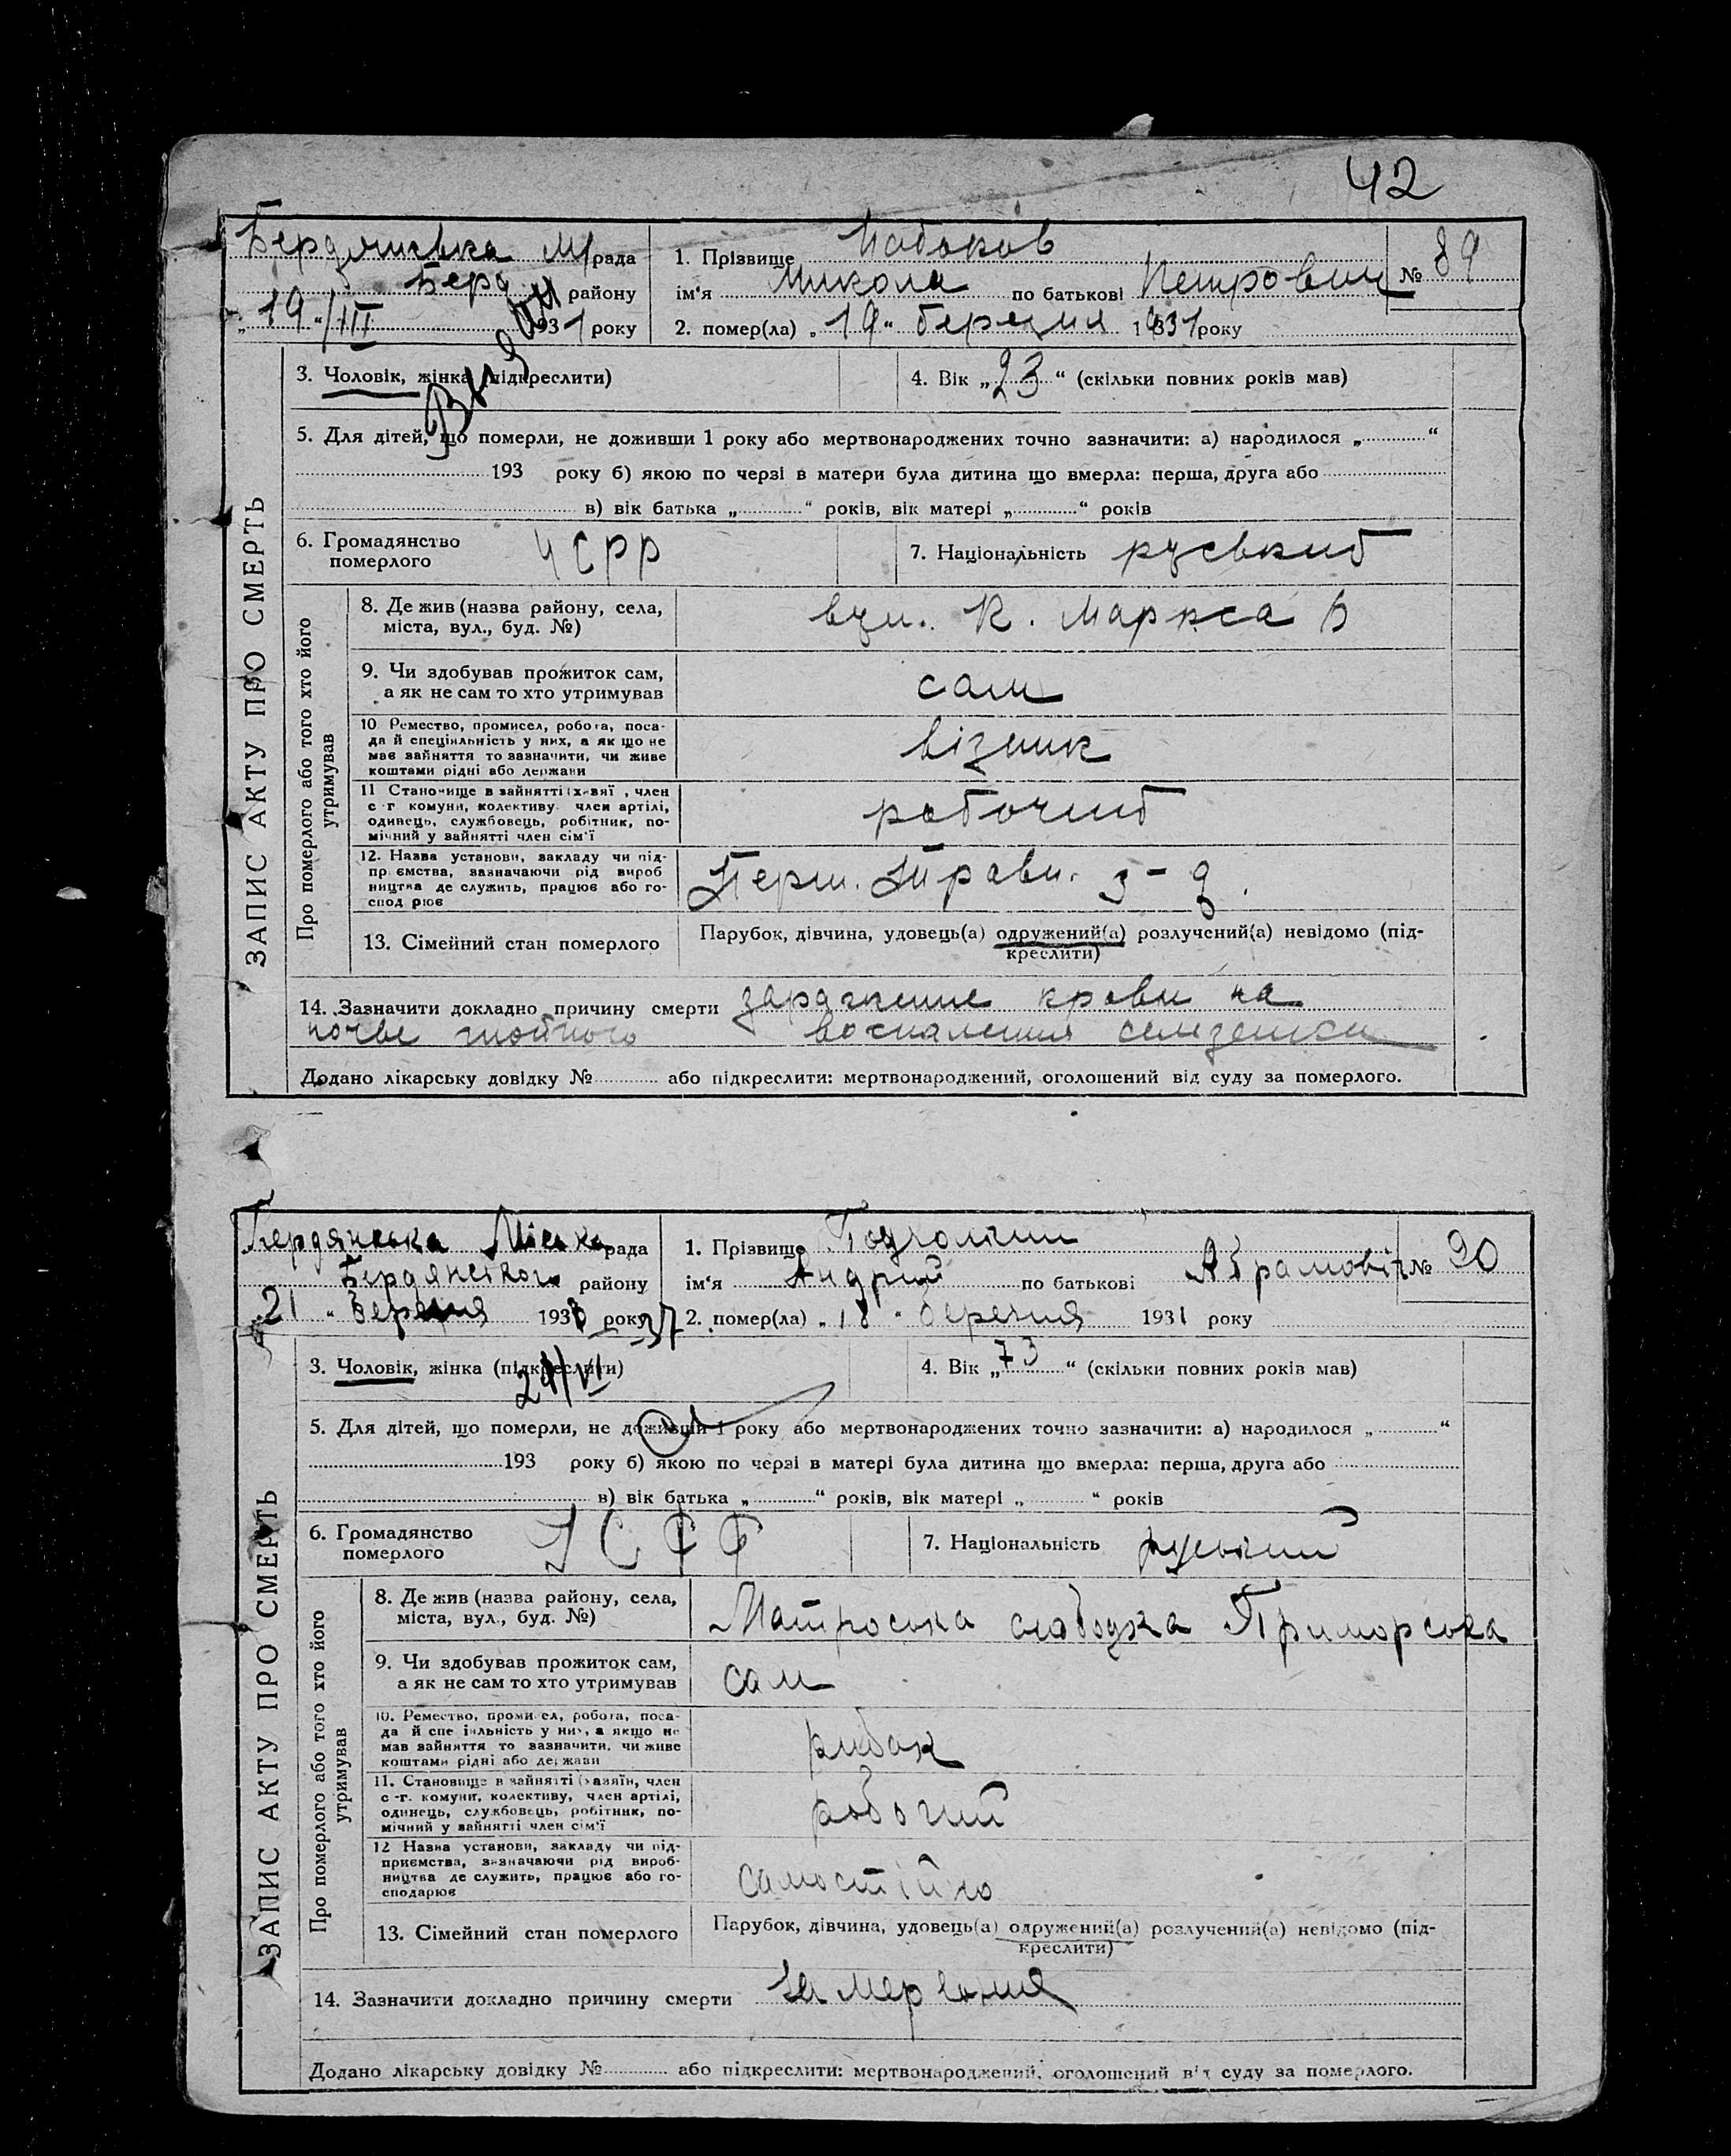 42
Бердянська М рада
Берд району
„19“/III 1931 року
1. Прізвище Набоков
ім‘я Микола по батькові Петрович
№ 89
2. помер(ла) „19“ березня 1931 року
3. Чоловік, жінка (підкреслити)
4. Вік „23“ (скільки повних років мав)
5. Для дітей, що померли, не доживши 1 року або мертвонароджених точно зазначити: а) народилося „ “
193 року б) якою по черзі в матери була дитина що вмерла: перша, друга або
в) вік батька „ “ років, вік матері „ “ років
6. Громадянство
померлого
УСРР
7. Національність руський
ЗАПИС АКТУ ПРО СМЕРТЬ
Про померлого або того хто його
утримував
8. Де жив (назва району, села,
міста, вул., буд. №)
вул. К. Маркса
9. Чи здобував прожиток сам,
а як не сам то хто утримував
сам
10 Ремество, промисел, робота, поса-
да й спеціяльність у них, а як що не
має зайняття то зазначити, чи живе
коштами рідні або держави
візник
11 Становище в зайнятті (хазяї , член
с г комуни, колективу член артілі,
одинець, службовець, робітник, по-
мічний у зайнятті член сім‘ї
рабочий
12. Назва установи, закладу чи під-
пр ємства, зазначаючи рід вироб
ництва де служить, працює або го-
спод рює
Перш. Травн. з-д.
13. Сімейний стан померлого
Парубок, дівчина, удовець(а) одружений(а) розлучений(а) невідомо (під-
креслити)
14. Зазначити докладно причину смерти заражение крови на
почве гнойного воспаления селезенки
Додано лікарську довідку № або підкреслити: мертвонароджений, оголошений від суду за померлого.
Бердянська Міська рада
Бердянського району
21 “ Березня 193 року
1. Прізвище
ім‘я Андрий по батькові Абрамовіч
№ 90
2. помер(ла) „18“ березня 1931 року
3. Чоловік, жінка (підкреслити)
4. Вік „73“ (скільки повних років мав)
5. Для дітей, що померли, не доживши 1 року або мертвонароджених точно зазначити: а) народилося „ “
193 року б) якою по черзі в матері була дитина що вмерла: перша, друга або
в) вік батька „ “ років, вік матері „ “ років
6. Громадянство
померлого
УСРР
7. Національність руський
ЗАПИС АКТУ ПРО СМЕРТЬ
Про померлого або того хто його
утримував
8. Де жив (назва району, села,
міста, вул., буд. №)
Матроська слободка Приморська
9. Чи здобував прожиток сам,
а як не сам то хто утримував
сам
10. Ремество, промисел, робота, поса-
да й спе іяльність у них, а якщо не
мав зайняття то зазначити, чи живе
коштами рідні або держави
рибак
11. Становище в зайнятті (хазяїн, член
с-г. комуни, колективу, член артілі,
одинець, службовець, робітник, по-
мічний у зайнятті член сім‘ї
рабочий
12 Назва установи, закладу чи під-
приємства, зазначаючи рід вироб-
ництва де служить, працює або го-
сподарює
самостійно
13. Сімейний стан померлого
Парубок, дівчина, удовець(а) одружений(а) розлучений(а) невідомо (під-
креслити)
14. Зазначити докладно причину смерти
Додано лікарську довідку № або підкреслити: мертвонароджений, оголошений від суду за померлого.